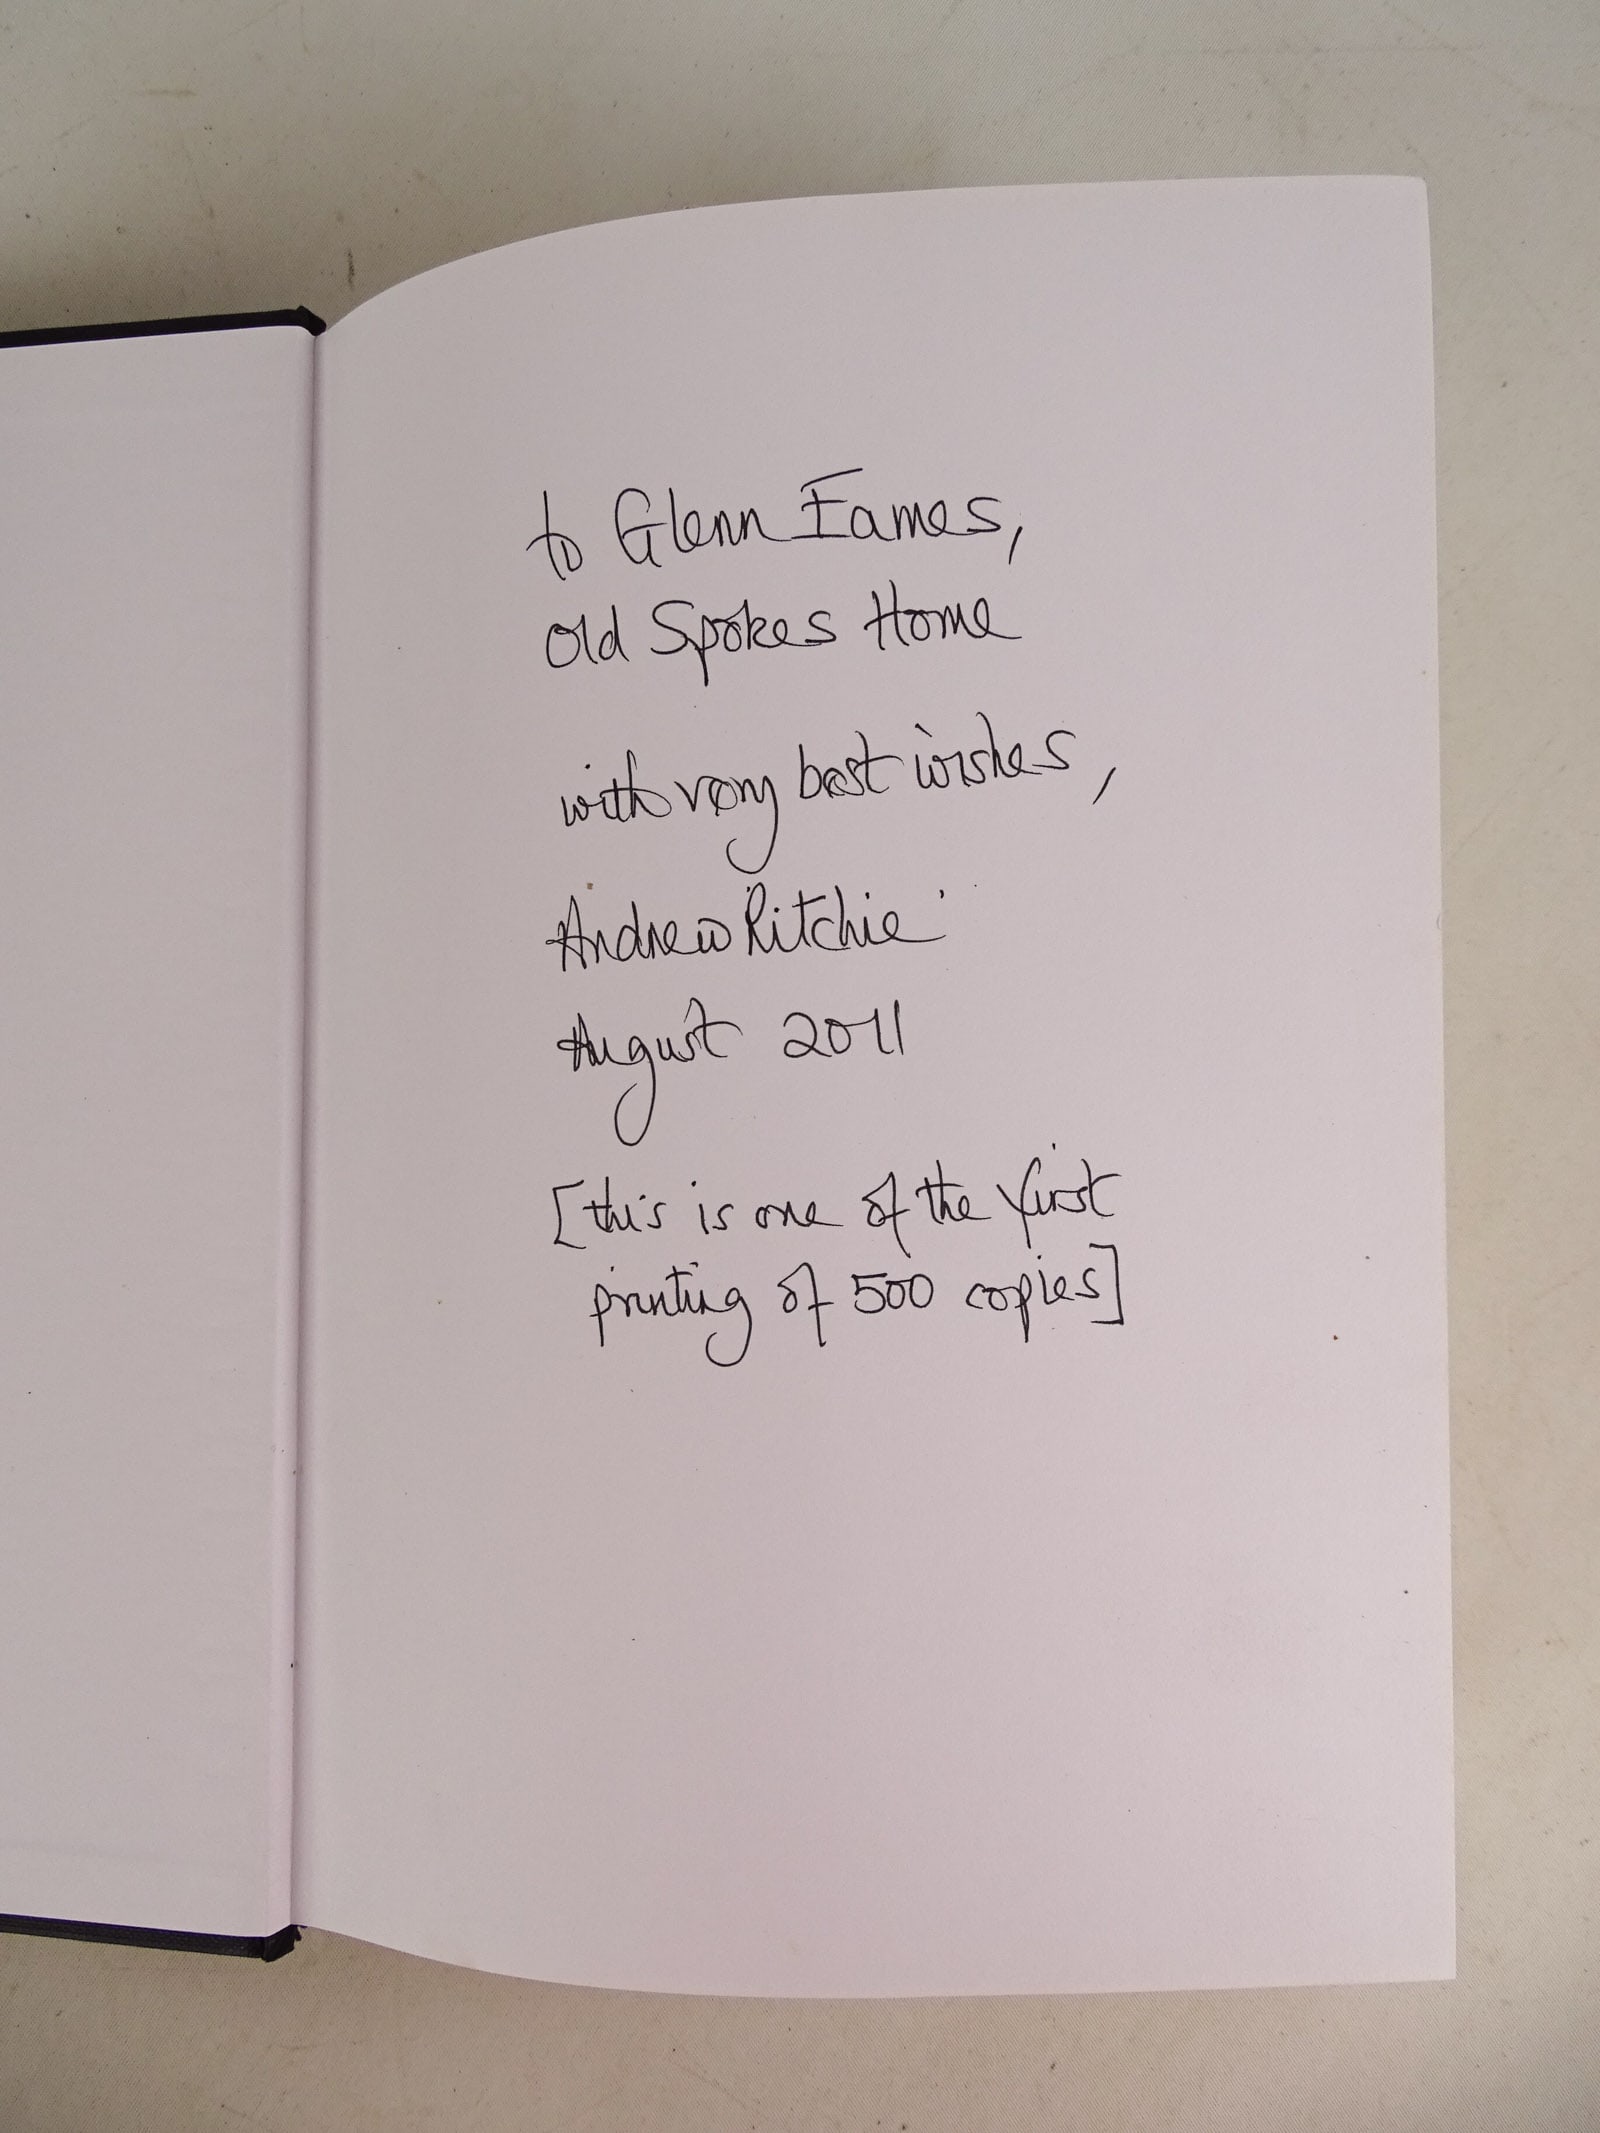 to Glenn Eames,
Old Spokes Home
with very best wishes,
Andrew Ritchie
August 2011
[this is one of the first
printing of 500 copies]